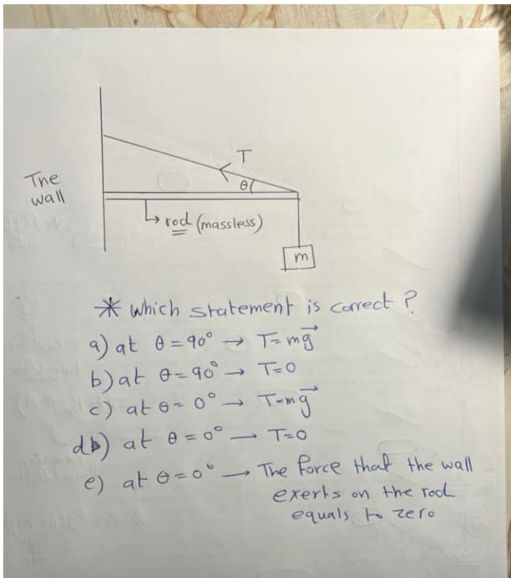 T
The
wall
θ
rod (massless)
m
* which statement is correct ?
a) at θ = 90° → T = mg⃗
b) at θ = 90° → T=0
c) at θ = 0° → T=mg⃗
d) at θ = 0° → T=0
e) at θ = 0° → The force that the wall
exerts on the rod
equals to zero